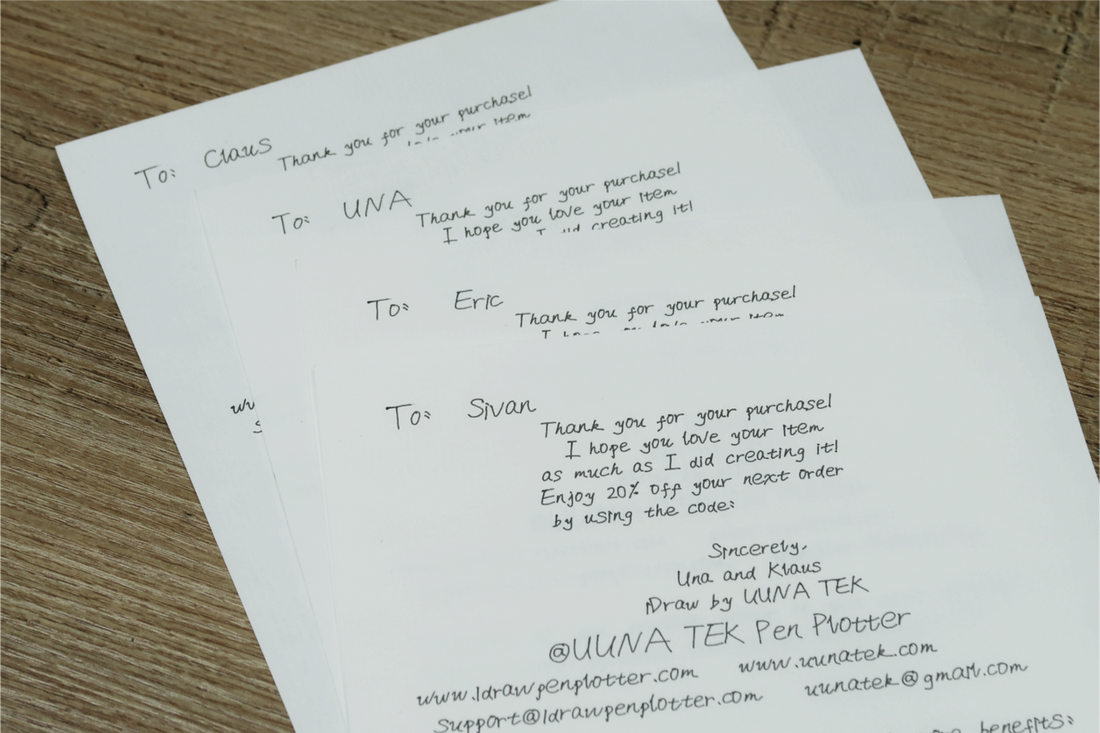 To: Claus
Thank you for your purchase!
To: UNA
Thank you for your purchase!
I hope you love your item
creating it!
To: Eric
Thank you for your purchase!
To: Sivan
Thank you for your purchase!
I hope you love your item
as much as I did creating it!
Enjoy 20% off your next order
by using the code:
Sincerely,
Una and Klaus
iDraw by UUNA TEK
@UUNA TEK Pen Plotter
www.idrawpenplotter.com www.uunatek.com
support@idrawpenplotter.com uunatek@gmail.com
benefits: